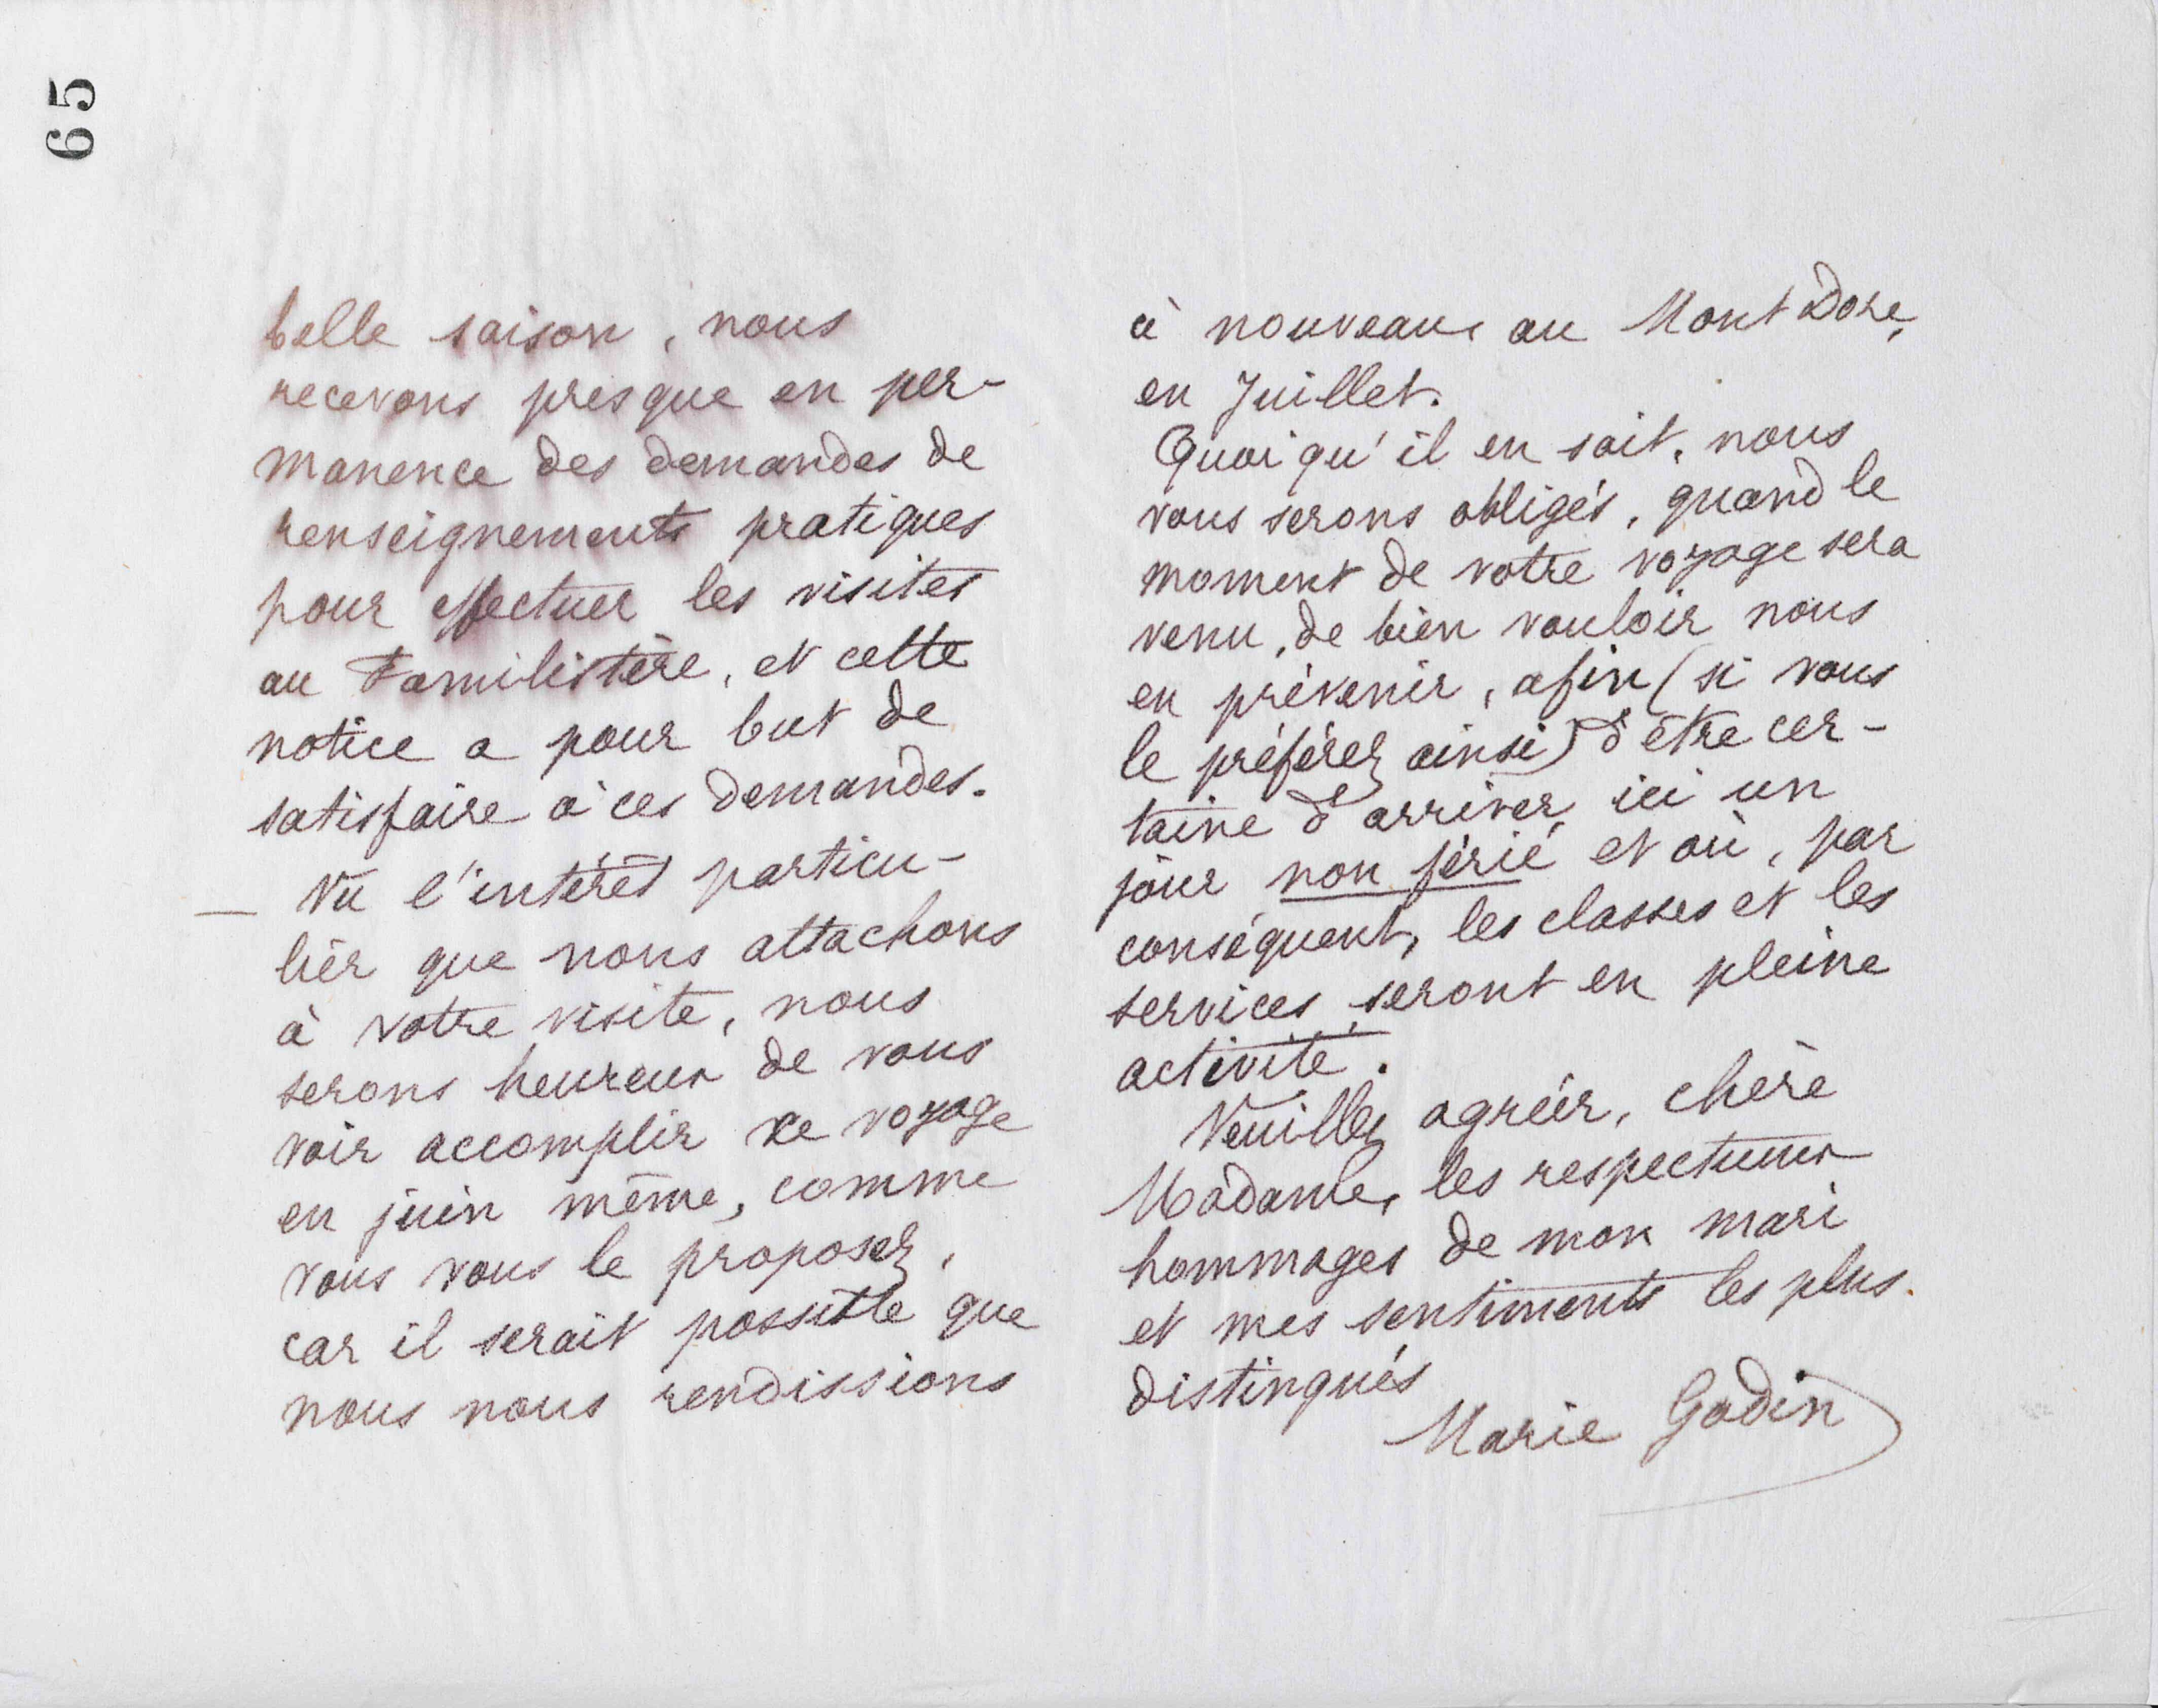 65
belle saison, nous
recevons presque en per-
manence des demandes de
renseignements pratiques
pour effectuer les visites
au Familistère, et cette
notice a pour but de
satisfaire à ces demandes.
— Vu l'intérêt particu-
lier que nous attachons
à votre visite, nous
serons heureux de vous
voir accomplir ce voyage
en juin même, comme
vous vous le proposez,
car il serait possible que
nous nous rendissions
à nouveau au Mont Dore,
en Juillet.
Quoiqu'il en soit, nous
vous serons obligés, quand le
moment de votre voyage sera
venu, de bien vouloir nous
en prévenir, afin (si vous
le préférez ainsi) d'être cer-
taine d'arriver ici un
jour non férié et où, par
conséquent, les classes et les
services seront en pleine
activité.
Veuillez agréer, chère
Madame, les respectueux
hommages de mon mari
et mes sentiments les plus
distingués
Marie Godin